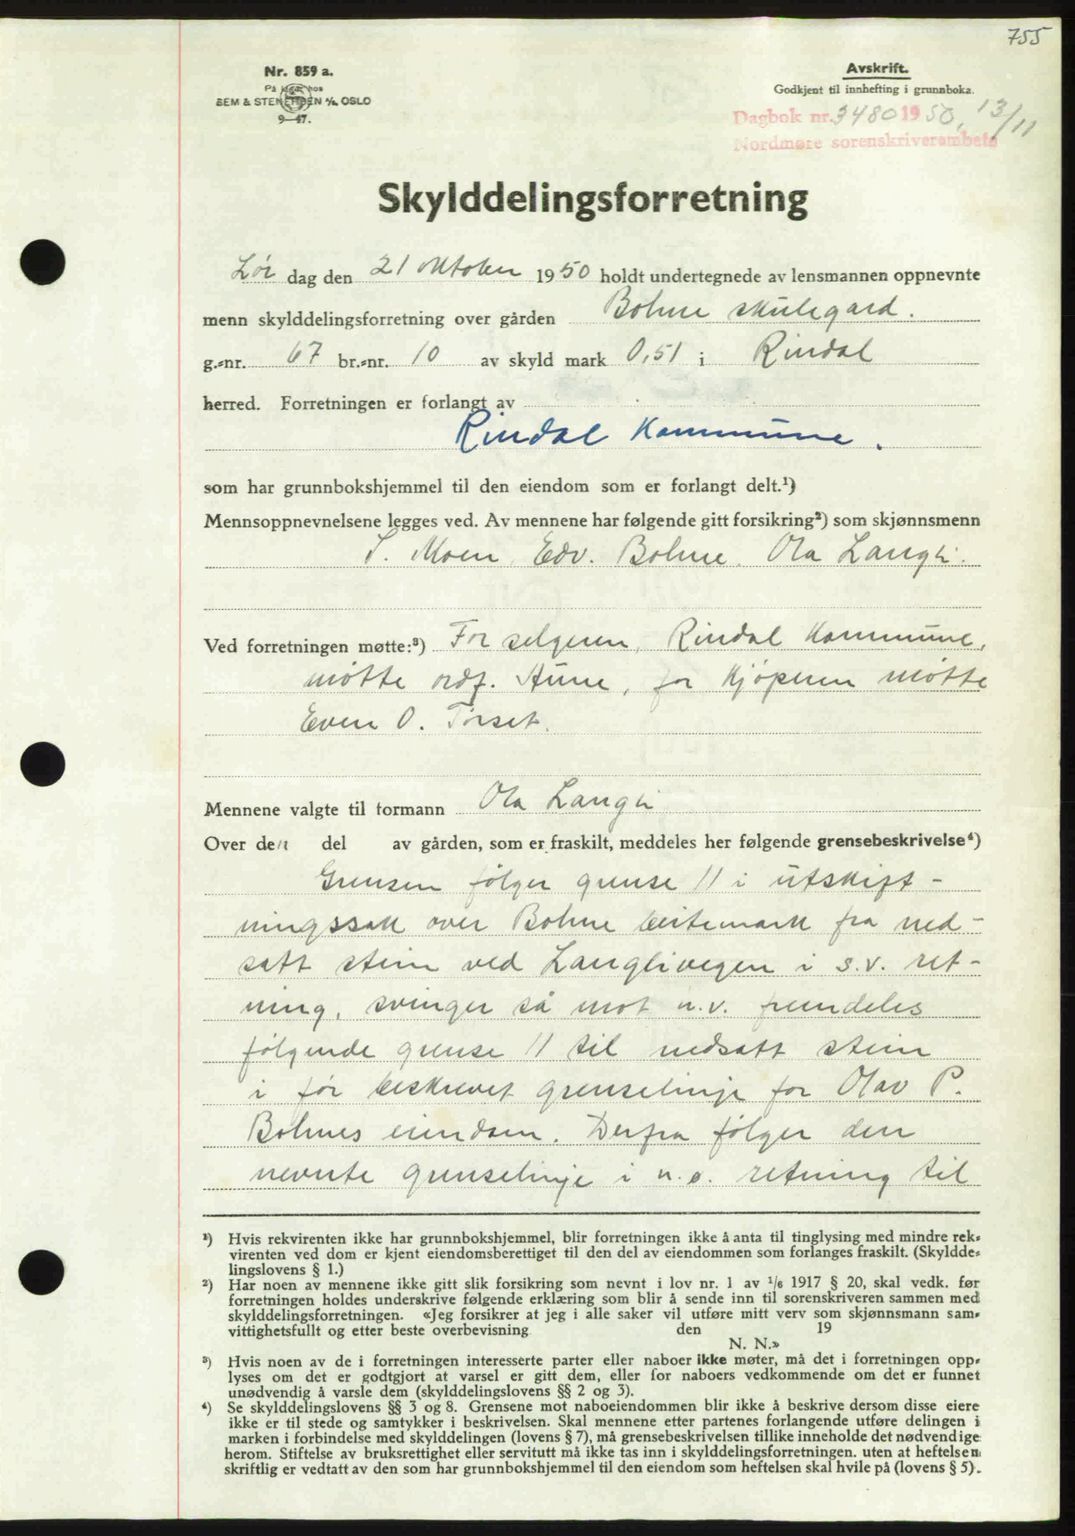 755
Nr. 859 a.
På lager hos
SEM & STENERSEN A/S, OSLO
9—47.
Avskrift.
Godkjent til innhefting i grunnboka.
Dagbok nr. 3480 1950, 13/11
Nordmøre sorenskriverembete
Skylddelingsforretning
Lør dag den 21 oktober 1950 holdt undertegnede av lensmannen oppnevnte
menn skylddelingsforretning over gården Bolme skulegard.
g.-nr. 67 br.-nr. 10 av skyld mark 0,51 i Rindal
herred. Forretningen er forlangt av
Rindal Kommune.
som har grunnbokshjemmel til den eiendom som er forlangt delt.¹)
Mennsoppnevnelsene legges ved. Av mennene har følgende gitt forsikring²) som skjønnsmenn
Moen, Edv. Bolme, Ola Langli.
Ved forretningen møtte:³) For selgeren, Rindal Kommune,
møtte ordf. Aune, for kjøperen møtte
Even O. Torset.
Mennene valgte til formann Ola Langli
Over den del av gården, som er fraskilt, meddeles her følgende grensebeskrivelse⁴)
Grensen følger grense 11 i utskift-
ningssak over Bolme beitemark fra ned-
satt stein ved Langlivegen i s.v. ret-
ning, svinger så mot n.v. fremdeles
følgende grense 11 til nedsatt stein
i før beskrevet grenselinje for Olav P.
Bolmes eiendom. Derfra følger den
nevnte grenselinje i n.ø. retning til
¹) Hvis rekvirenten ikke har grunnbokshjemmel, blir forretningen ikke å anta til tinglysing med mindre rek-
virenten ved dom er kjent eiendomsberettiget til den del av eiendommen som forlanges fraskilt. (Skyldde-
lingslovens § 1.)
²) Har noen av mennene ikke gitt slik forsikring som nevnt i lov nr. 1 av 1/6 1917 § 20, skal vedk. før
forretningen holdes underskrive følgende erklæring som blir å sende inn til sorenskriveren sammen med
skylddelingsforretningen. «Jeg forsikrer at jeg i alle saker vil utføre mitt verv som skjønnsmann sam-
vittighetsfullt og etter beste overbevisning den 19
N. N.»
³) Hvis noen av de i forretningen interesserte parter eller naboer ikke møter, må det i forretningen opp-
lyses om det er godtgjort at varsel er gitt dem, eller for naboers vedkommende om det er funnet
unødvendig å varsle dem (skylddelingslovens §§ 2 og 3).
⁴) Se skylddelingslovens §§ 3 og 8. Grensene mot naboeiendommen blir ikke å beskrive dersom disse eiere
ikke er til stede og samtykker i beskrivelsen. Skal mennene etter partenes forlangende utføre delingen i
marken i forbindelse med skylddelingen (lovens § 7), må grensebeskrivelsen tillike inneholde det nødvendige
herom. Stiftelse av bruksrettighet eller servitutt må ikke tas inn i skylddelingsforretningen. uten at heftelsen
skriftlig er vedtatt av den som har grunnbokshjemmel til den eiendom som heftelsen skal hvile på (lovens § 5).